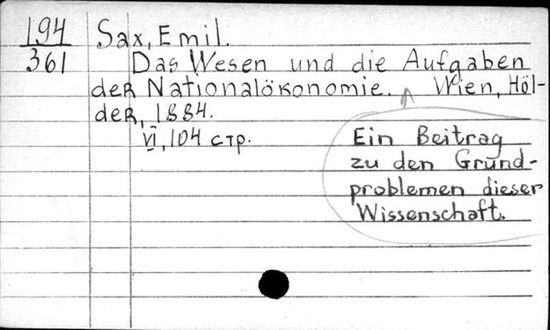 194
361
Sax, Emil.
Das Wesen und die Aufgaben
der Nationalökonomie. Wien, Höl-
der, 1884.
VI, 104 стр.
Ein Beitrag
zu den Grund-
problemen dieser
Wissenschaft.